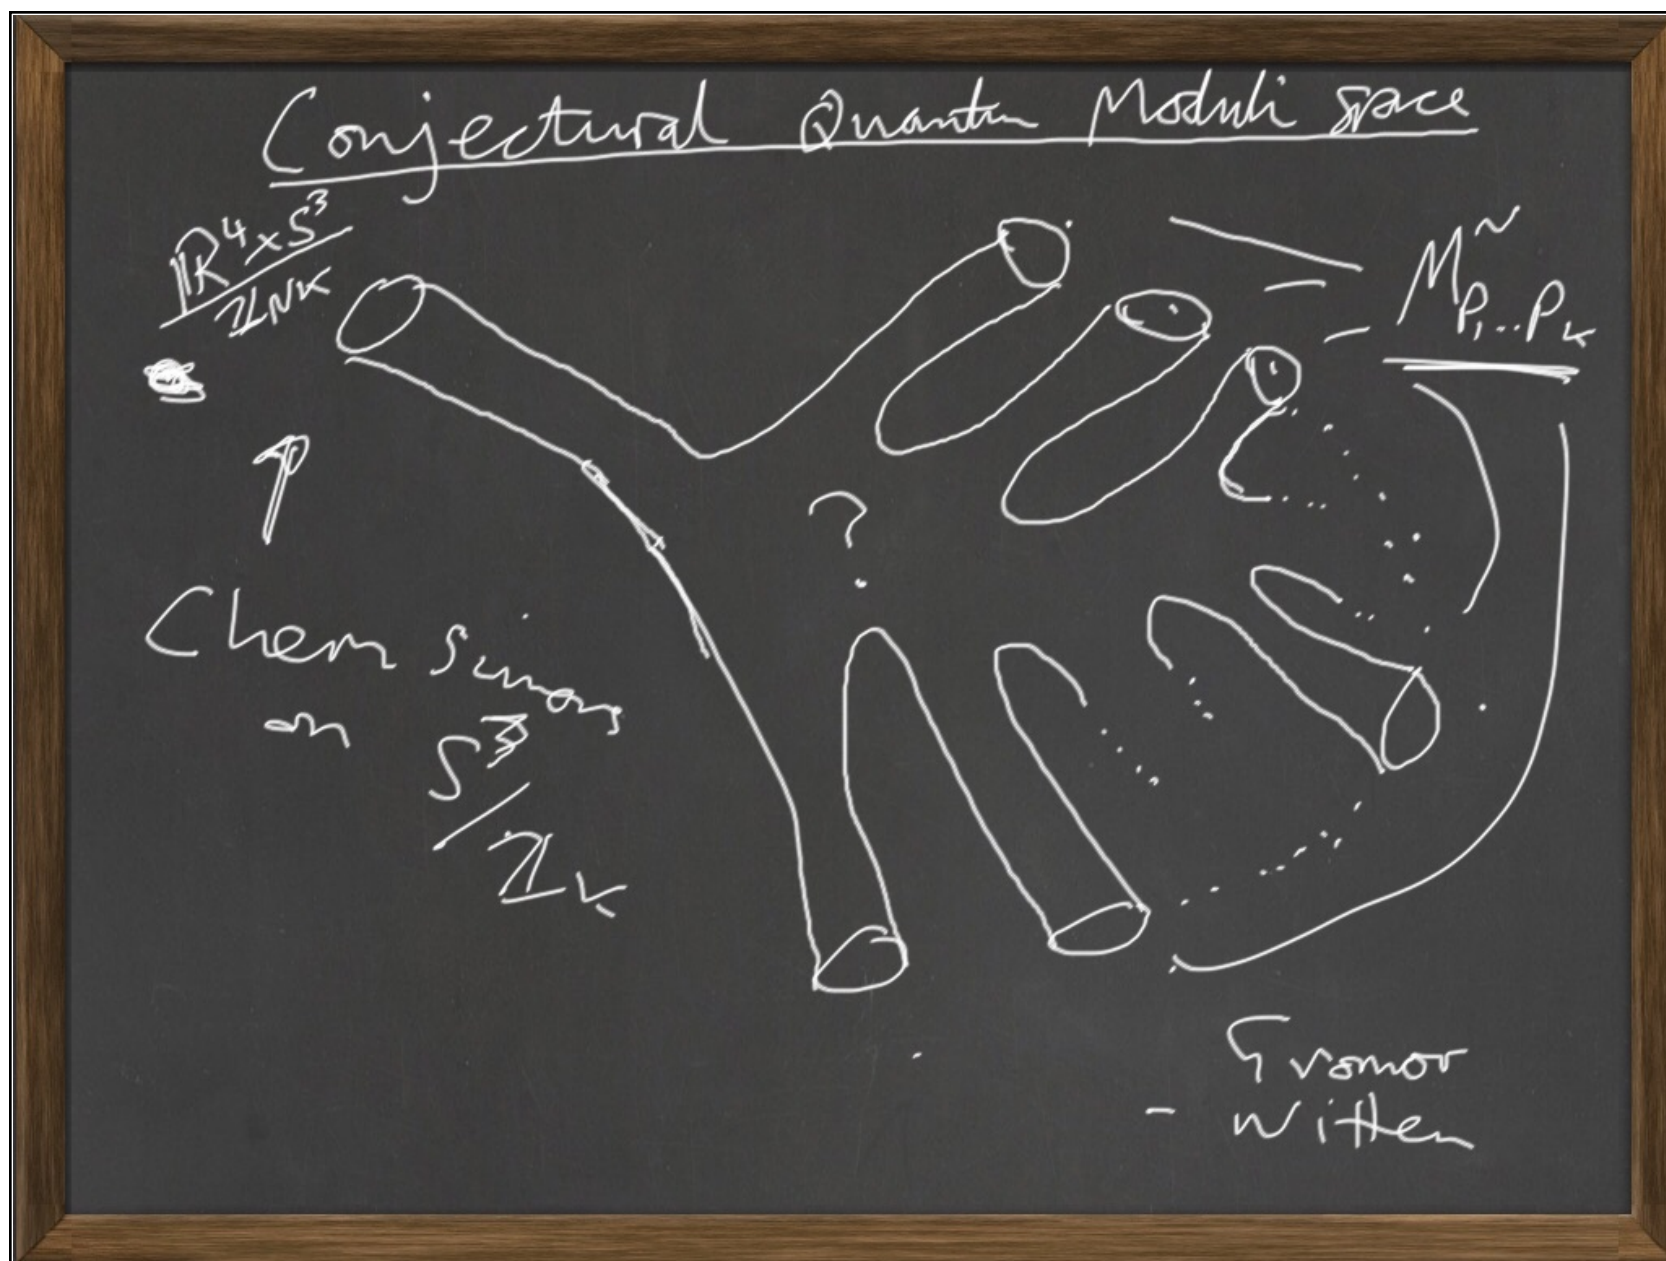 Conjectural Quantum Moduli space
ℝ⁴×S³
/
ℤNK
M~P₁..Pₖ
?
Chern Simons
on
S³
/
ℤₖ
Gromov
- Witten